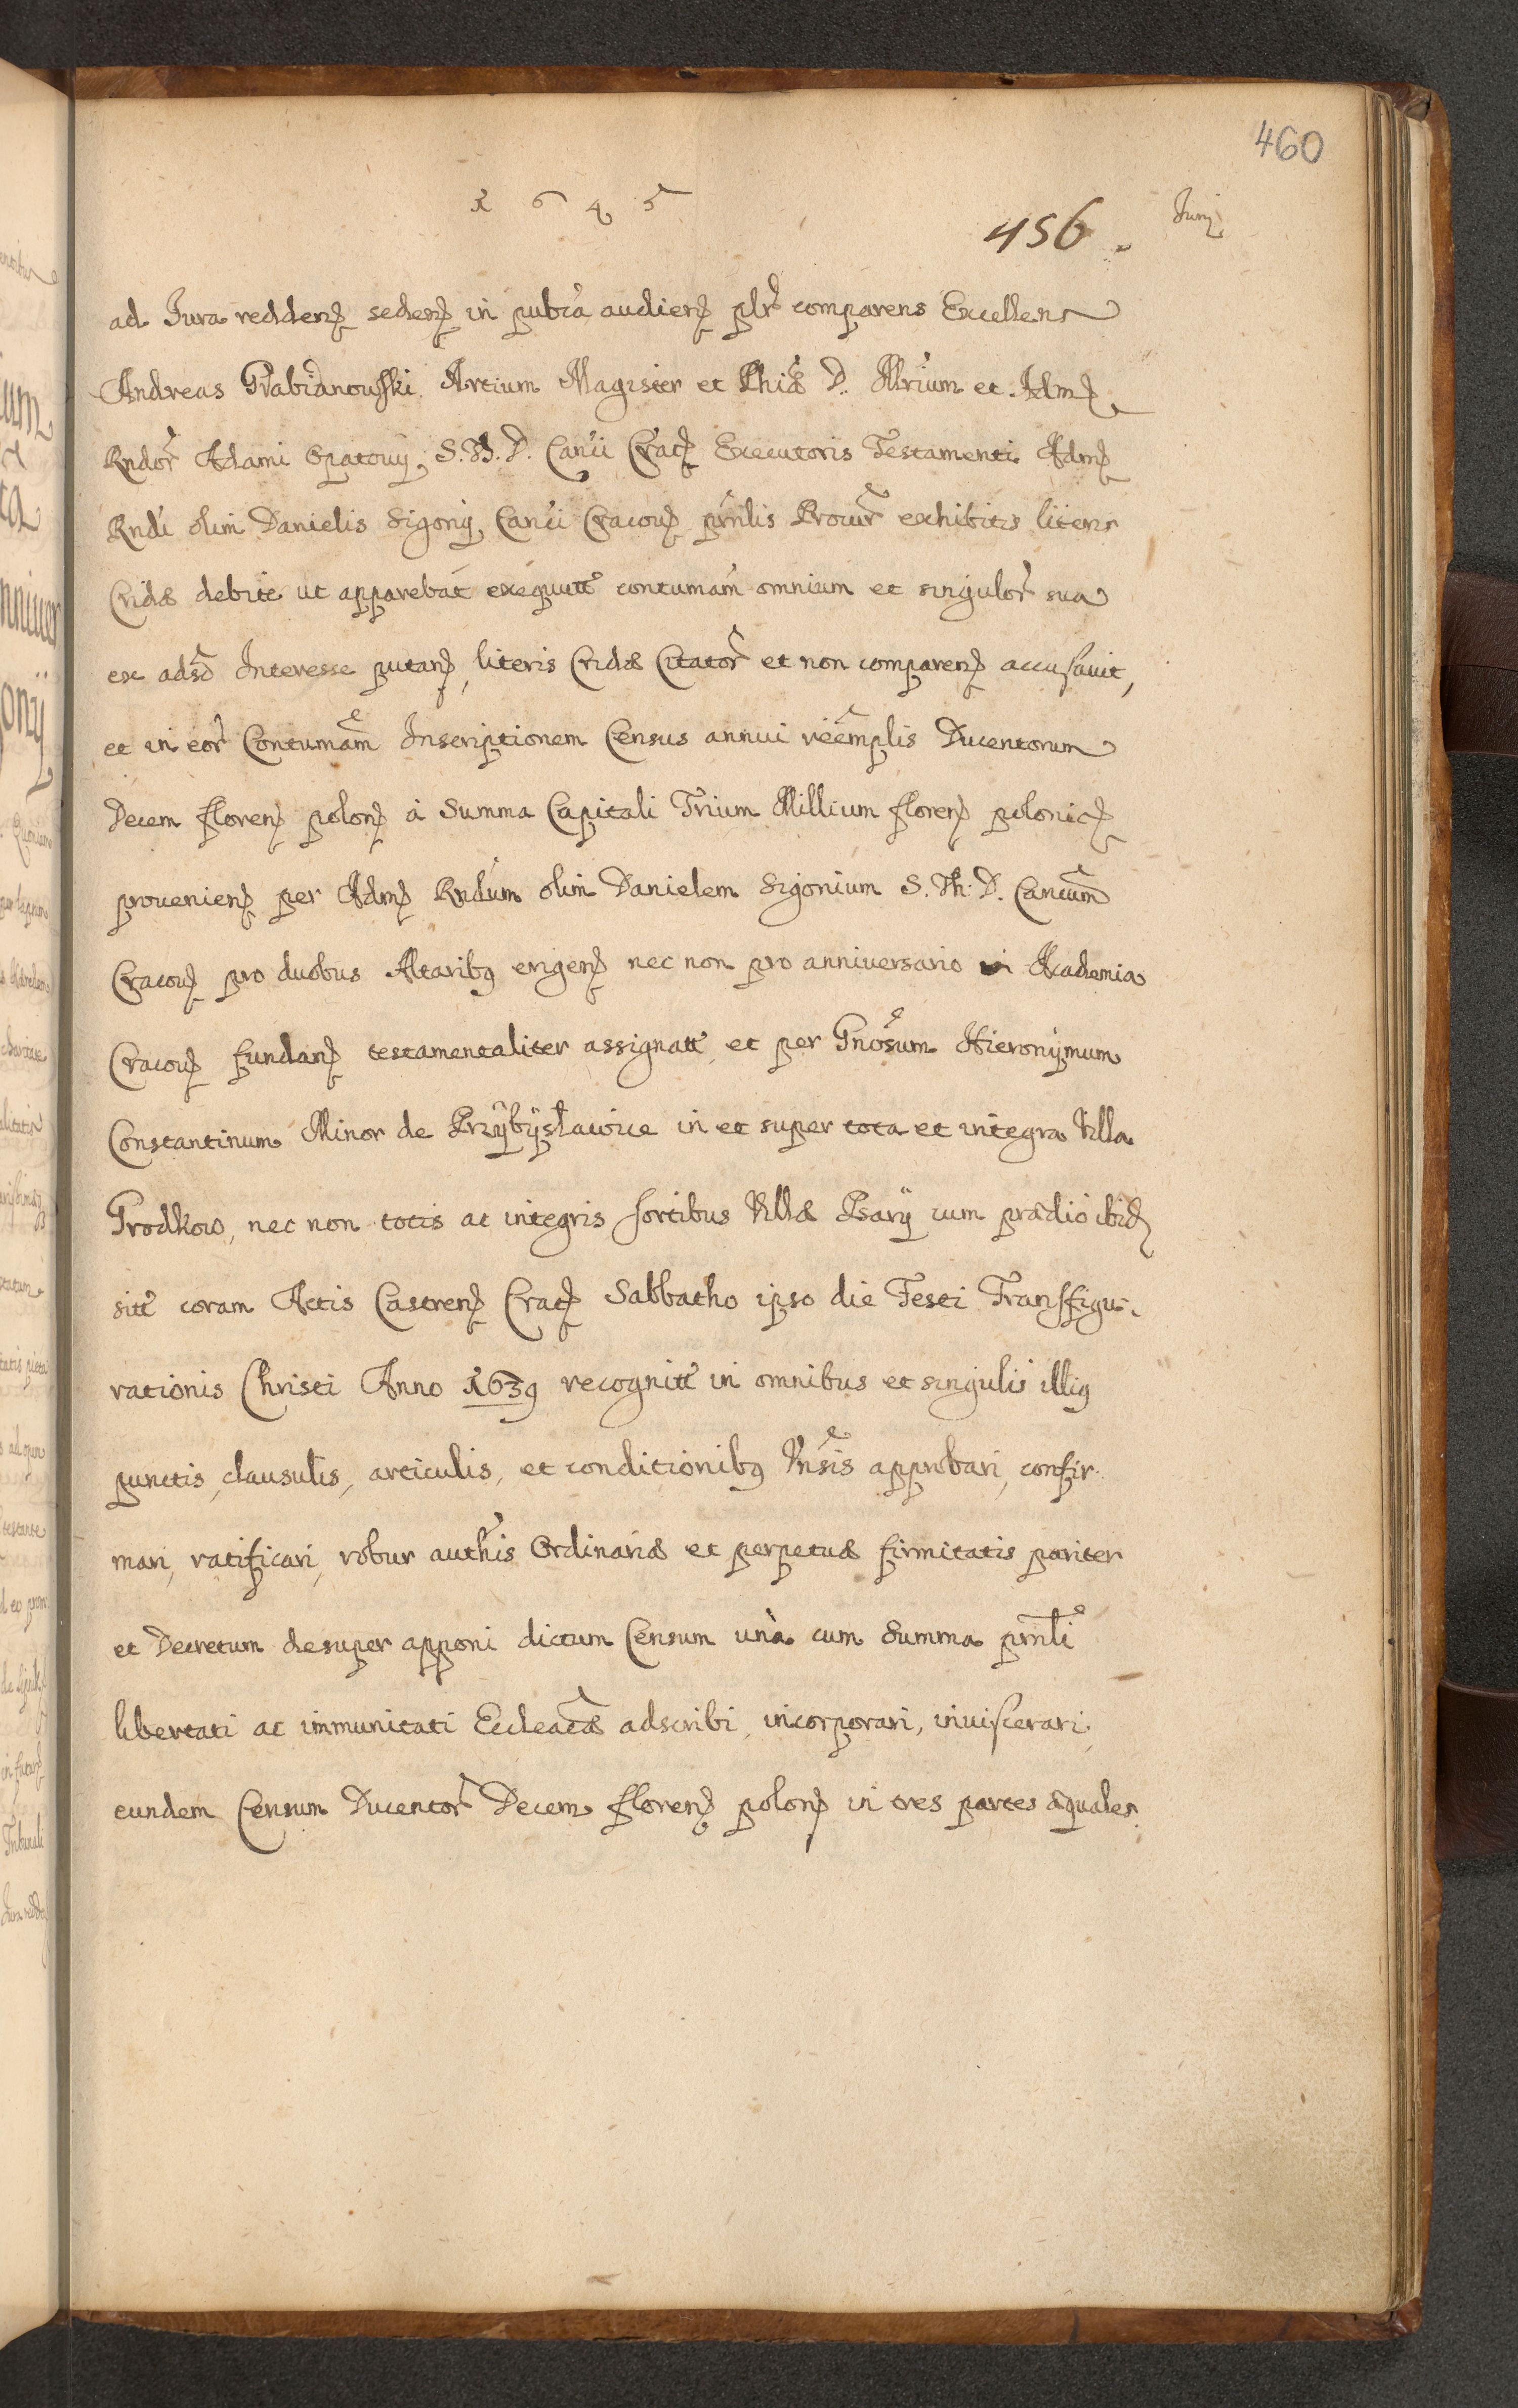 460
1645
456.
Junij
ad Jura reddenꝫ sedenꝫ in publca audienꝫ plr comparens Excellens
Andreas Grabianouski Artium Magister et Phiæ D. Mrium et Admꝫ
Rndor Adami Opatouij S. Th. D. Canci Cracꝫ Executoris Testamenti Admꝫ
Rndi olim Danielis Sigonij Canci Cracouꝫ prnlis Procur exhibitis literis
Cridæ debite ut apparebat exequutt contumam omnium et singulor sua
ex adso Interesse putanꝫ, literis Cridæ Citator et non comparenꝫ accusauit,
et in eor Contumam Inscriptionem Census annui reemplis Ducentorum
Decem florenꝫ polonꝫ à Summa Capitali Trium Millium florenꝫ polonicꝫ
prouenienꝫ per Admꝫ Rndum olim Danielem Sigonium S. Th. D. Cancum
Cracouꝫ pro duobus Altaribꝫ erigenꝫ nec non pro anniuersario in Academia
Cracouꝫ fundanꝫ testamentaliter assignatt, et per Gnosum Hieronÿmum
Constantinum Minor de Przÿbÿsławice in et super tota et integra Villa
Grodkow, nec non totis ac integris sortibus Villæ Psarÿ cum prædio ibidꝫ
sitt coram Actis Castrenꝫ Cracꝫ Sabbatho ipso die Festi Transfigu-
rationis Christi Anno 1639 recognitt in omnibus et singulis illiꝫ
punctis, clausulis, articulis, et conditionibꝫ Vnsis approbari, confir-
mari, ratificari, robur authis Ordinariæ et perpetuæ firmitatis pariter
et Decretum desuper apponi dictum Censum unà cum Summa prnli
libertati ac immunitati Eccleacæ adscribi, incorporari, inuiscerari,
eundem Censum Ducentor Decem florenꝫ polonꝫ in tres partes æquales